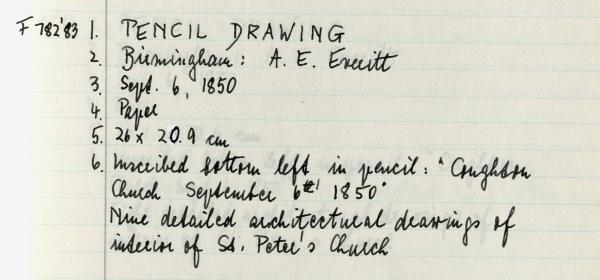 F782'83 1. PENCIL DRAWING
2. Birmingham: A. E. Everitt
3. Sept. 6, 1850
4. Paper
5. 26 x 20.9 cm
6. Inscribed bottom left in pencil: "Coughton
Church September 6th 1850"
Nine detailed architectural drawings of
interior of St. Peter's Church